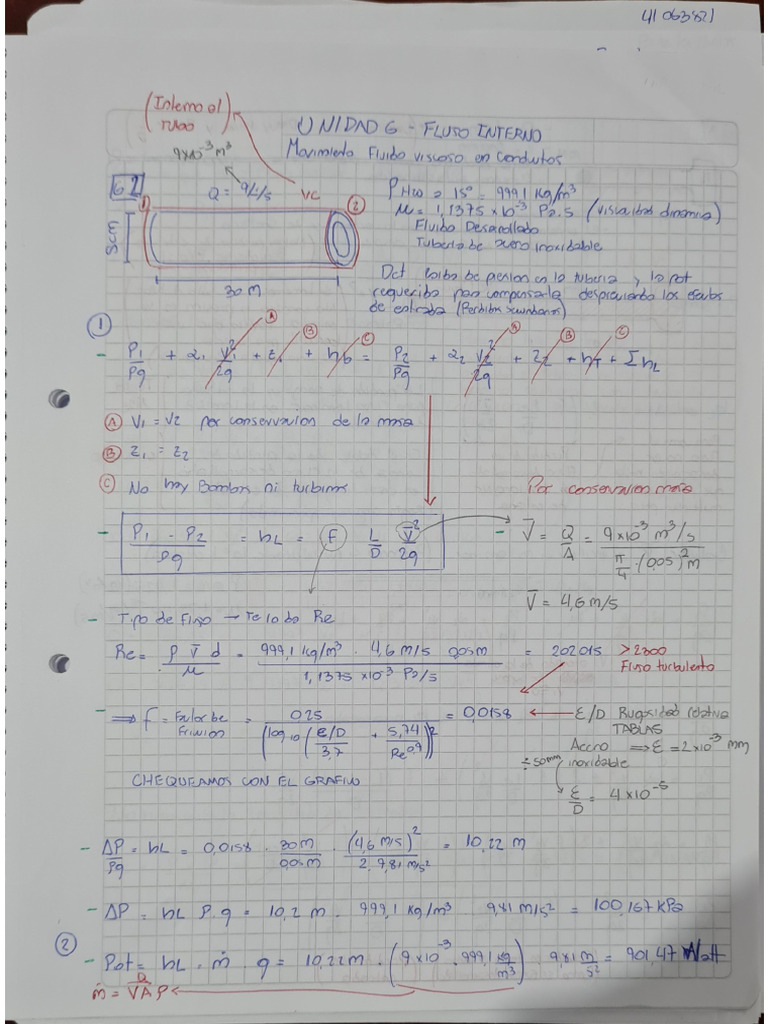 41063821
(Interno al tubo)
UNIDAD 6 - FLUJO INTERNO
Movimiento Fluido viscoso en Conductos
9x10⁻³ m³
6.2
Q = 9L/s
VC
1
2
5cm
30 m
ρ H2O a 15° = 999,1 kg/m³
μ = 1,1375 x10⁻³ Pa.s (viscosidad dinamica)
Fluido Desarrollado
Tuberia de acero inoxidable
Det caida de presion en la tuberia y la pot
requerida para compensarla despreciando los efectos
de entrada (Perdidas secundarias)
1
A B C A B C
- P1/ρg + α1 V1²/2g + z1 + hb = P2/ρg + α2 V2²/2g + z2 + hT + Σ hL
A V1 = V2 por conservacion de la masa
B z1 = z2
C No hay Bombas ni turbinas
Por conservacion masa
- P1 - P2/ρg = hL = F L/D V̄²/2g
- V̄ = Q/A = 9x10⁻³ m³/s / π/4 . (0,05)² m
V̄ = 4,6 m/s
- Tipo de Flujo → Re
Re = ρ V̄ d/μ = 999,1 kg/m³ . 4,6 m/s 0,05m / 1,1375 x10⁻³ Pa/s = 202015 > 2300
Flujo turbulento
- ⇒ f = Factor de Friccion = 0,25 / (log10 (ε/D/3,7 + 5,74/Re^0,9))² = 0,0158 ← ε/D Rugosidad relativa
TABLAS
Acero inoxidable ⇒ ε = 2x10⁻³ mm
÷50mm
ε/D = 4x10⁻⁵
CHEQUEAMOS CON EL GRAFICO
- ΔP/ρg = hL = 0,0158 . 30m/0,05m . (4,6 m/s)²/2 . 9,81 m/s² = 10,22 m
- ΔP = hL ρ.g = 10,2 m . 999,1 kg/m³ 9,81 m/s² = 100,167 kPa
2
- Pot = hL . ṁ . g = 10,22m . (9x10⁻³ . 999,1 kg/m³) 9,81 m/s² = 901,47 Watt
Q
ṁ = V̄Aρ